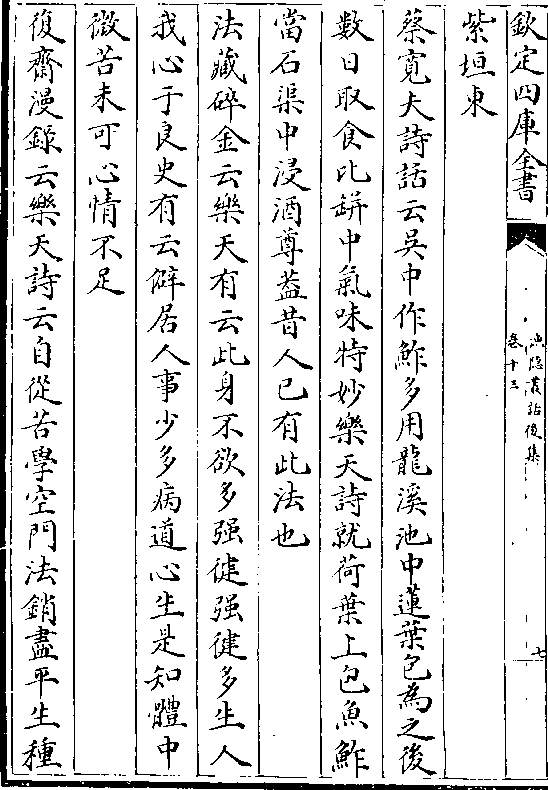 欽定四庫全書
漁隱叢話後集
卷十三
七
紫垣東
蔡寬夫詩話云吳中作鮓多用龍溪池中蓮葉包為之後
數日取食比缾中氣味特妙樂天詩就荷葉上包魚鮓
當石渠中浸酒尊葢昔人已有此法也
法藏碎金云樂天有云此身不欲多强健强健多生人
我心于良史有云僻居人事少多病道心生是知體中
微苦未可心情不足
復齋漫錄云樂天詩云自從苦學空門法銷盡平生種